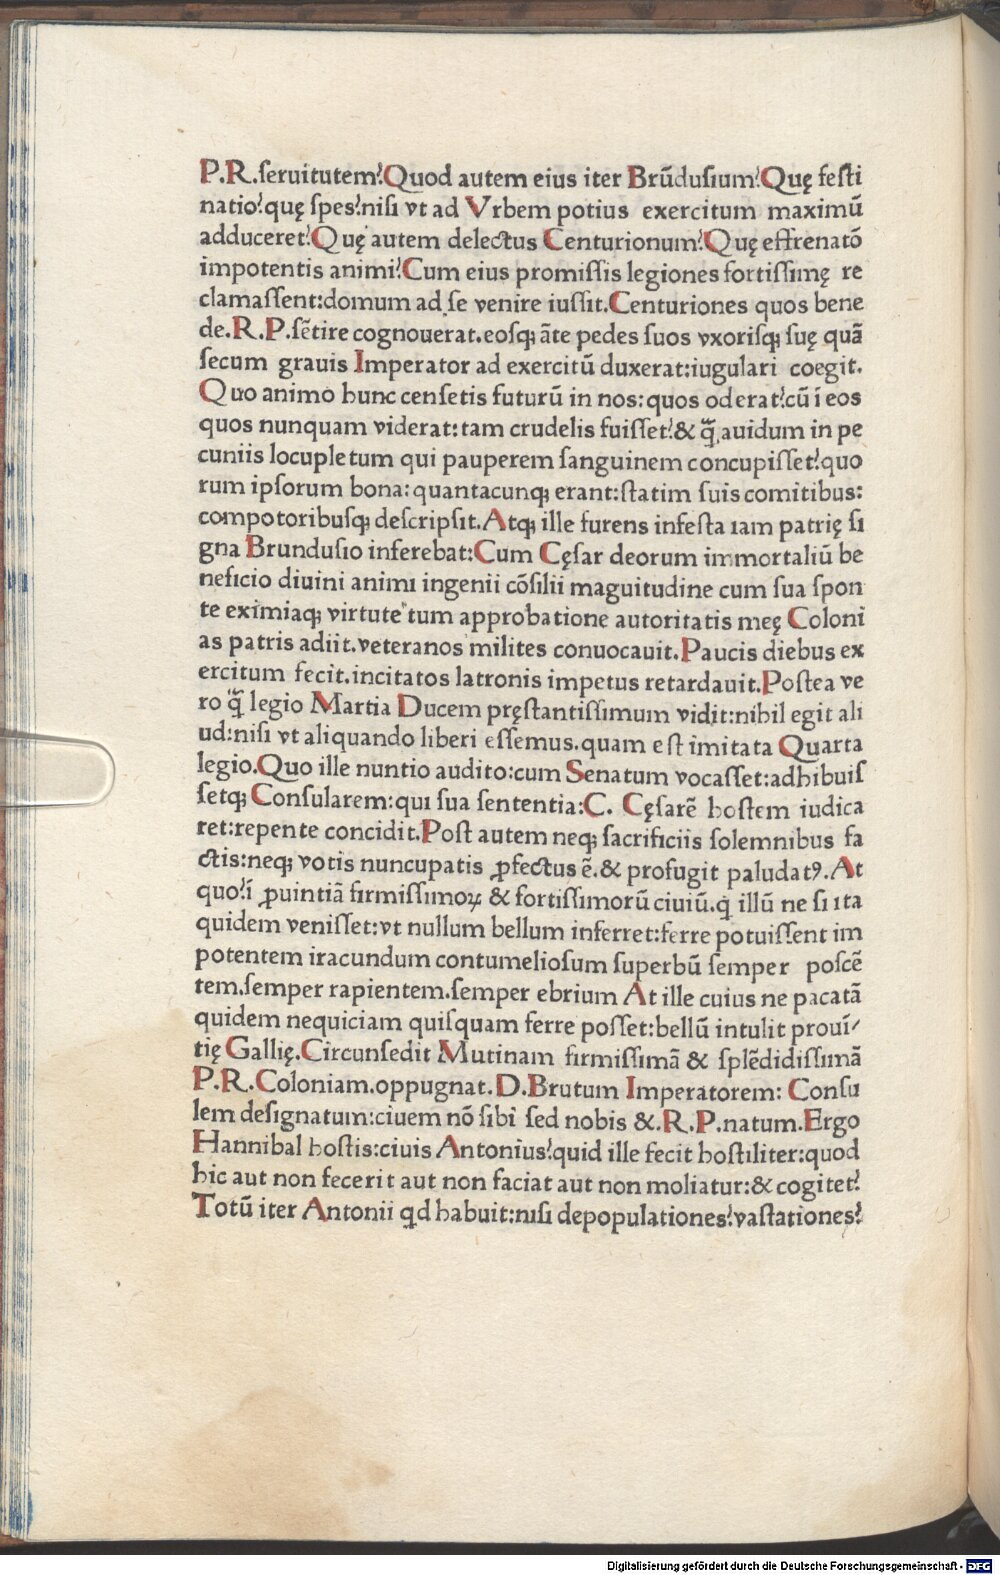 P.R.ſeruitutem?Quod autem eius iter Brũduſium?Quę feſti
natio?quę ſpes?niſi vt ad Vrbem potius exercitum maximũ
adduceret?Quę autem delectus Centurionum?Quę effrenatõ
impotentis animi?Cum eius promiſſis legiones fortiſſimę re
clamaſſent:domum ad ſe venire iuſſit.Centuriones quos bene
de.R.P.ſẽtire cognouerat.eoſqꝫ ãte pedes ſuos vxoriſqꝫ ſuę quã
ſecum grauis Imperator ad exercitũ duxerat:iugulari coegit.
Quo animo hunc cenſetis futurũ in nos:quos oderat?cũ ĩ eos
quos nunquam viderat:tam crudelis fuiſſet?& q̃ auidum in pe
cuniis locupletum qui pauperem ſanguinem concupiſſet?quo
rum ipſorum bona:quantacunqꝫ erant:ſtatim ſuis comitibus:
compotoribuſqꝫ deſcripſit.Atqꝫ ille furens infeſta iam patrię ſi
gna Brunduſio inferebat:Cum Cęſar deorum immortaliũ be
neficio diuini animi ingenii cõſilii maguitudine cum ſua ſpon
te eximiaqꝫ virtute tum approbatione autoritatis meę Coloni
as patris adiit.veteranos milites conuocauit.Paucis diebus ex
ercitum fecit.incitatos latronis impetus retardauit.Poſtea ve
ro q̃ legio Martia Ducem pręſtantiſſimum vidit:nihil egit ali
ud:niſi vt aliquando liberi eſſemus.quam eſt imitata Quarta
legio.Quo ille nuntio audito:cum Senatum vocaſſet:adhibuiſ
ſetqꝫ Conſularem:qui ſua ſententia:C. Cęſarẽ hoſtem iudica
ret:repente concidit.Poſt autem neqꝫ ſacrificiis ſolemnibus fa
ctis:neqꝫ votis nuncupatis ꝓfectus ẽ.& profugit paludatꝰ.At
quo?ĩ ꝓuintiã firmiſſimoꝝ & fortiſſimorũ ciuiũ.q̇ illũ ne ſi ita
quidem veniſſet:vt nullum bellum inferret:ferre potuiſſent im
potentem iracundum contumelioſum ſuperbũ ſemper poſcẽ
tem.ſemper rapientem.ſemper ebrium At ille cuius ne pacatã
quidem nequiciam quiſquam ferre poſſet:bellũ intulit prouĩ⸗
tię Gallię.Circunſedit Mutinam firmiſſimã & ſplẽdidiſſimã
P.R.Coloniam.oppugnat.D.Brutum Imperatorem: Conſu
lem deſignatum:ciuem nõ ſibi ſed nobis &.R.P.natum.Ergo
Hannibal hoſtis:ciuis Antonius?quid ille fecit hoſtiliter:quod
hic aut non fecerit aut non faciat aut non moliatur:& cogitet?
Totũ iter Antonii qd habuit:niſi depopulationes?vaſtationes?
Digitalisierung gefördert durch die Deutsche Forschungsgemeinschaft - DFG